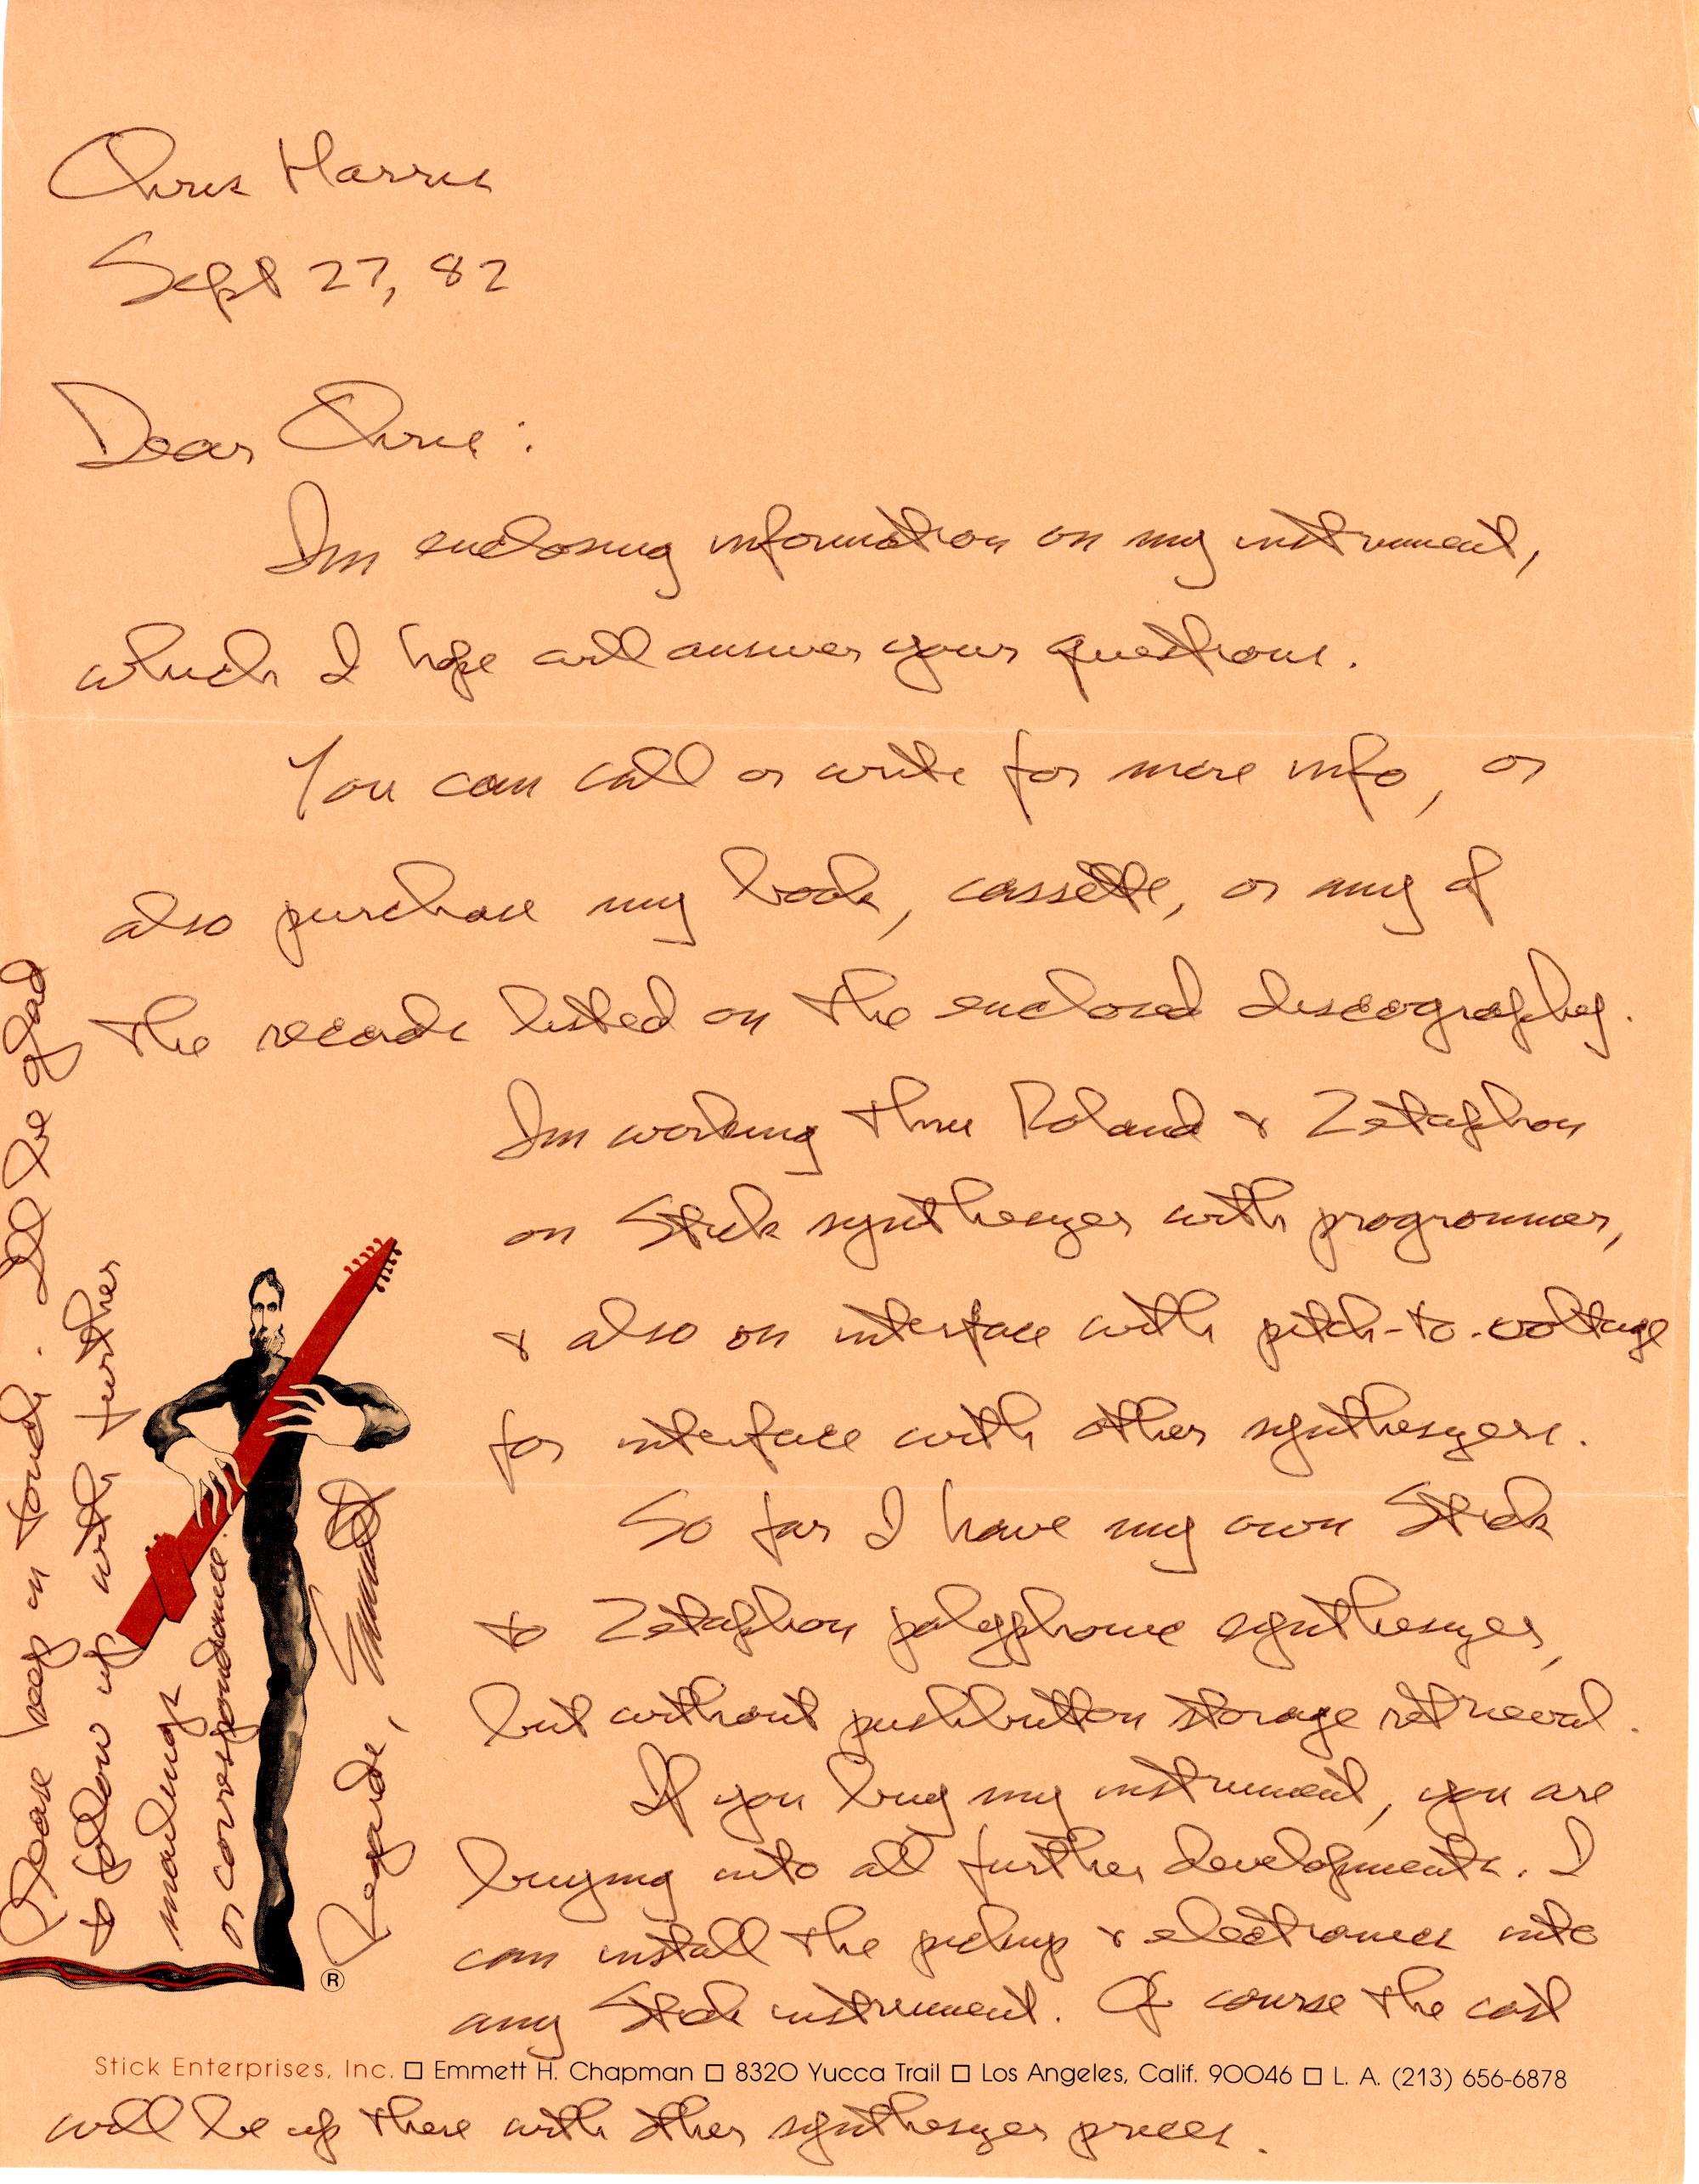 Chris Harris
Sept 27, 82
Dear Chris:
I'm enclosing information on my instrument,
which I hope will answer your questions.
You can call or write for more info, or
also purchase my book, cassette, or any of
the records listed on the enclosed discography.
I'm working thru Roland & Zetaphon
on Stick synthesyzer with programmer,
& also on interface with pitch-to-voltage
for interface with other synthesyzers.
So far I have my own Stick
to Zetaphon polyphonic synthesyzer,
but without pushbutton storage retrieval.
If you buy my instrument, you are
buying into all further developments. I
can install the pickup & electronics into
any Stick instrument. Of course the cost
Stick Enterprises, Inc. □ Emmett H. Chapman □ 8320 Yucca Trail □ Los Angeles, Calif. 90046 □ L. A. (213) 656-6878
will be up there with other synthesyzer prices.
Please keep in touch. I'll be glad
to follow up with further
mailings
or correspondence.
Regards, Emmett
®